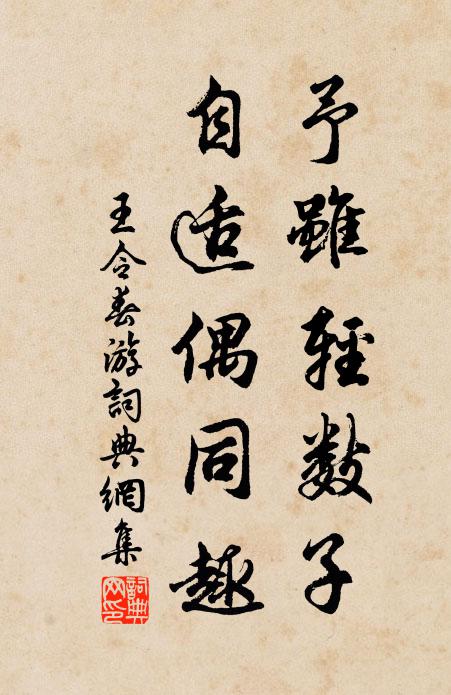 予雖輕数子
自适偶同趣
王令春游詞典網集
詞典網印